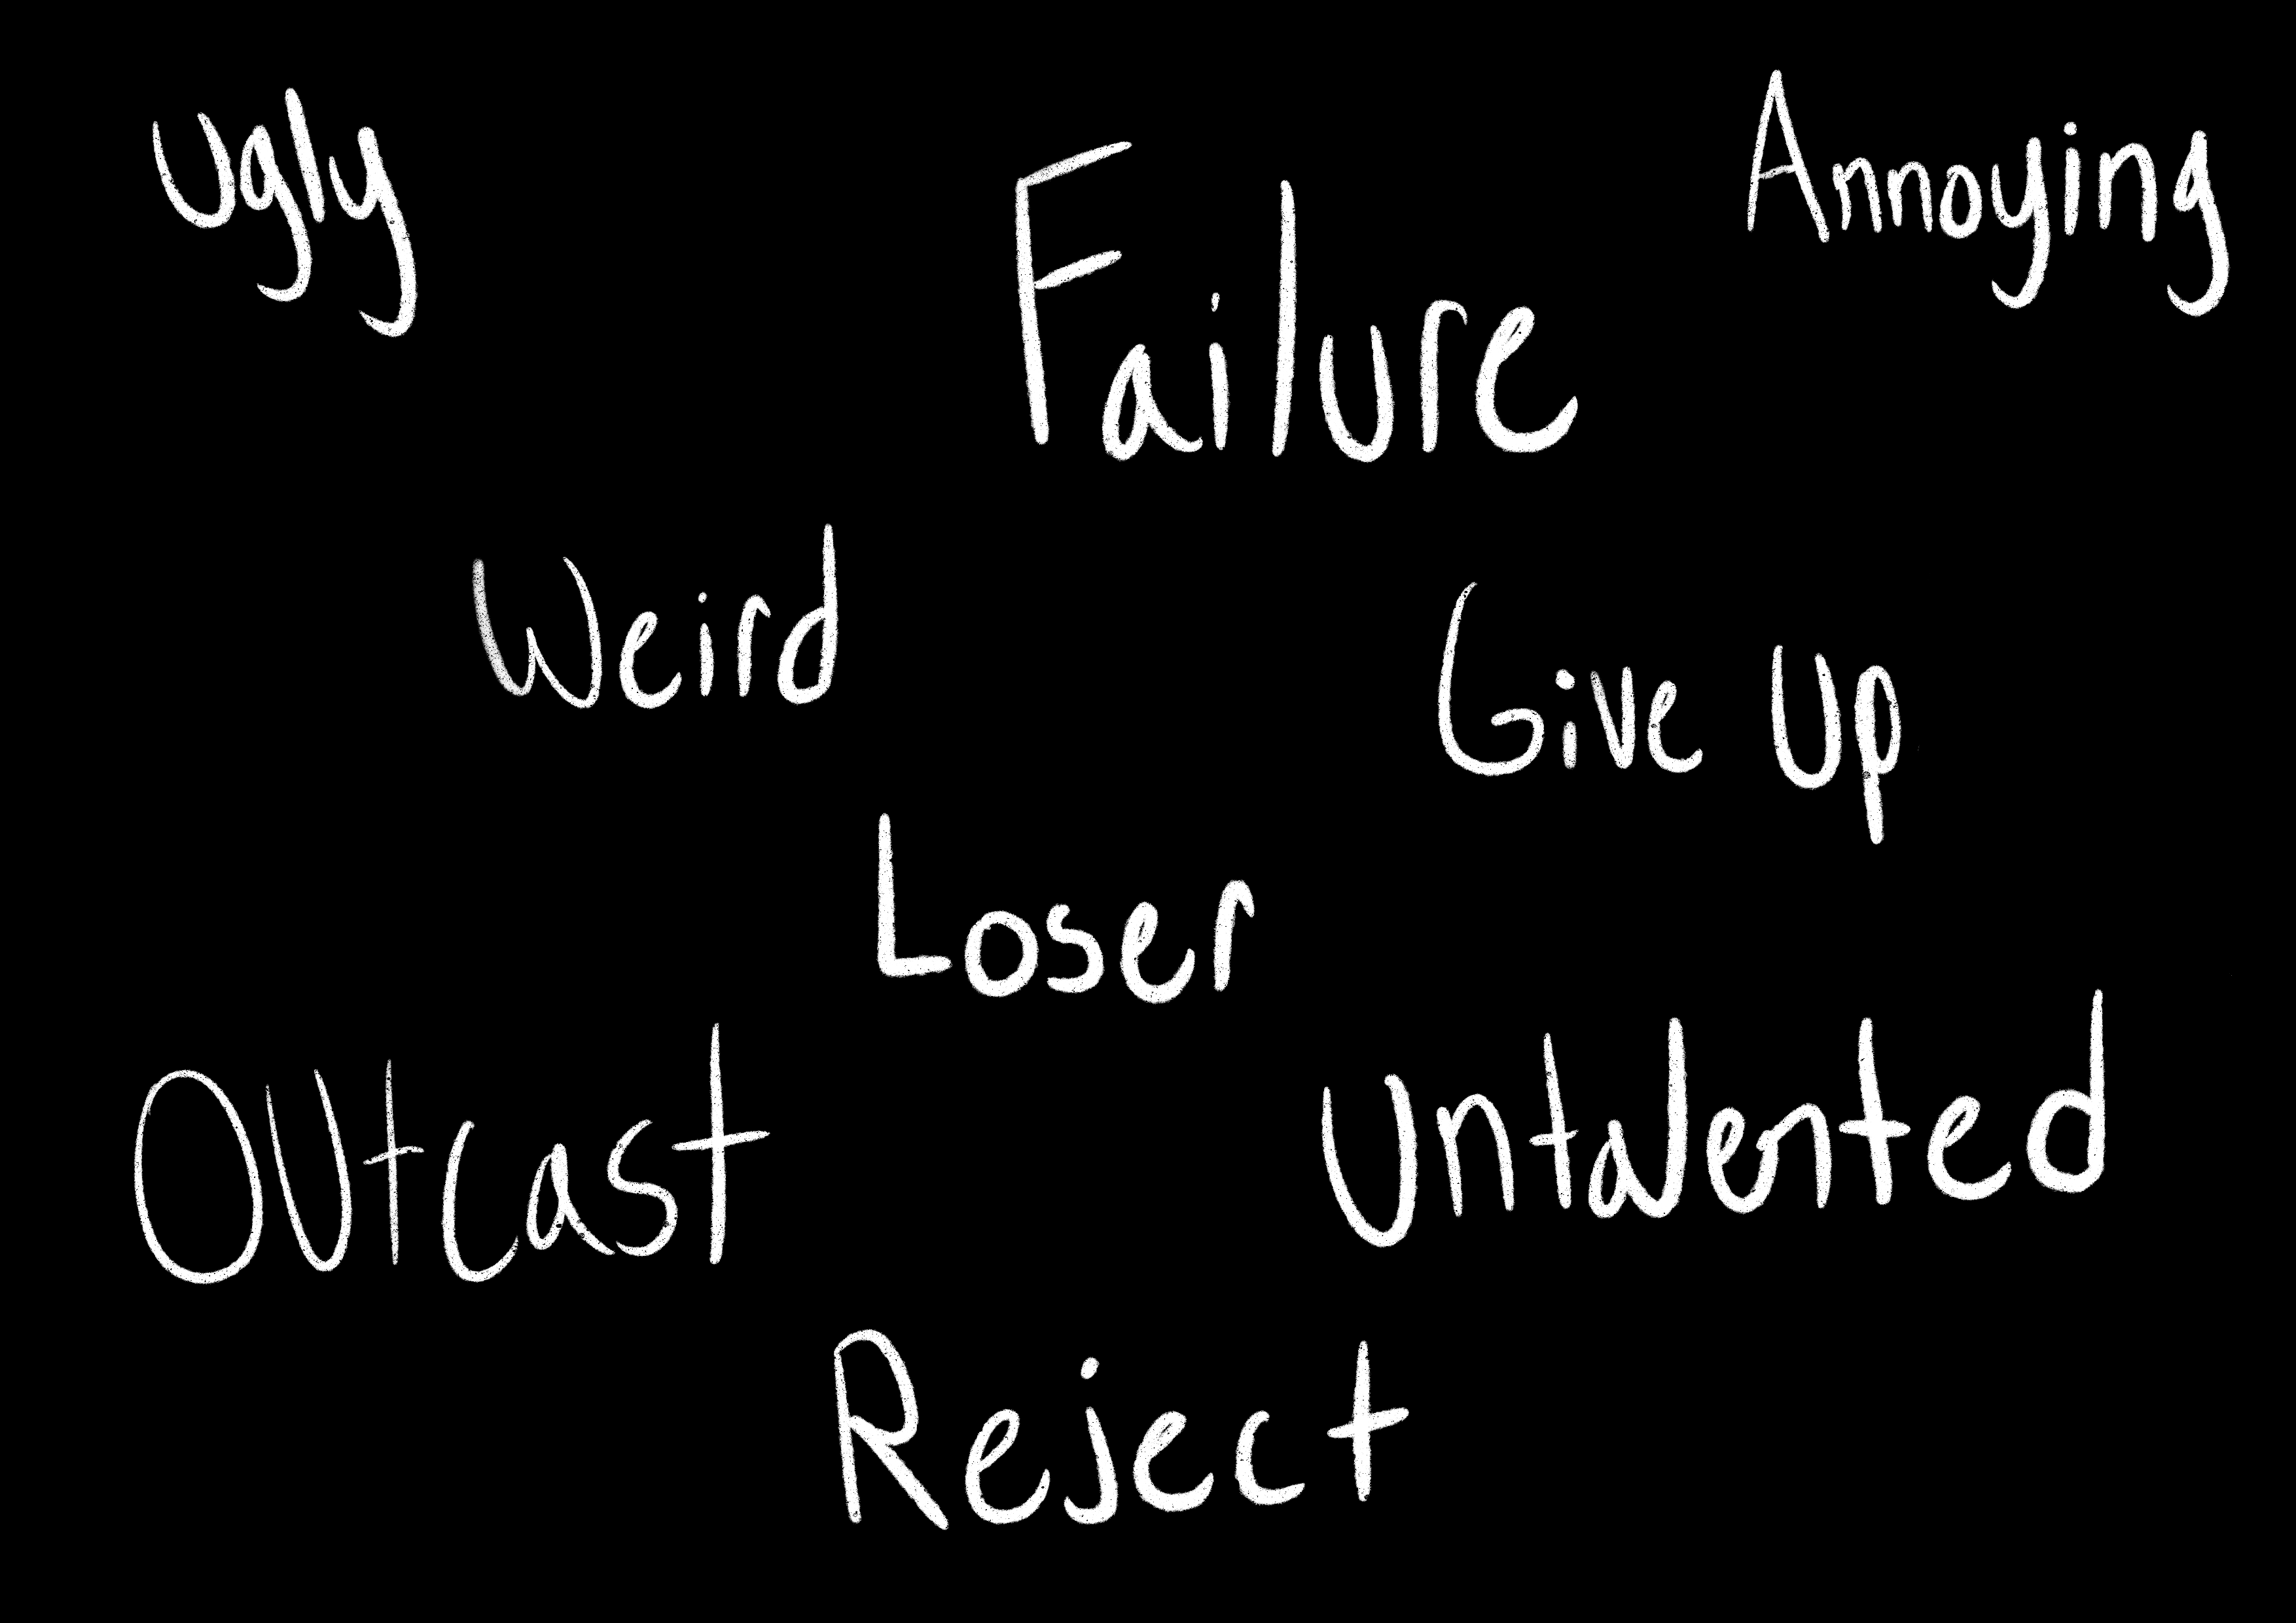 Ugly
Failure
Annoying
Weird
Give Up
Loser
Outcast
Untalented
Reject